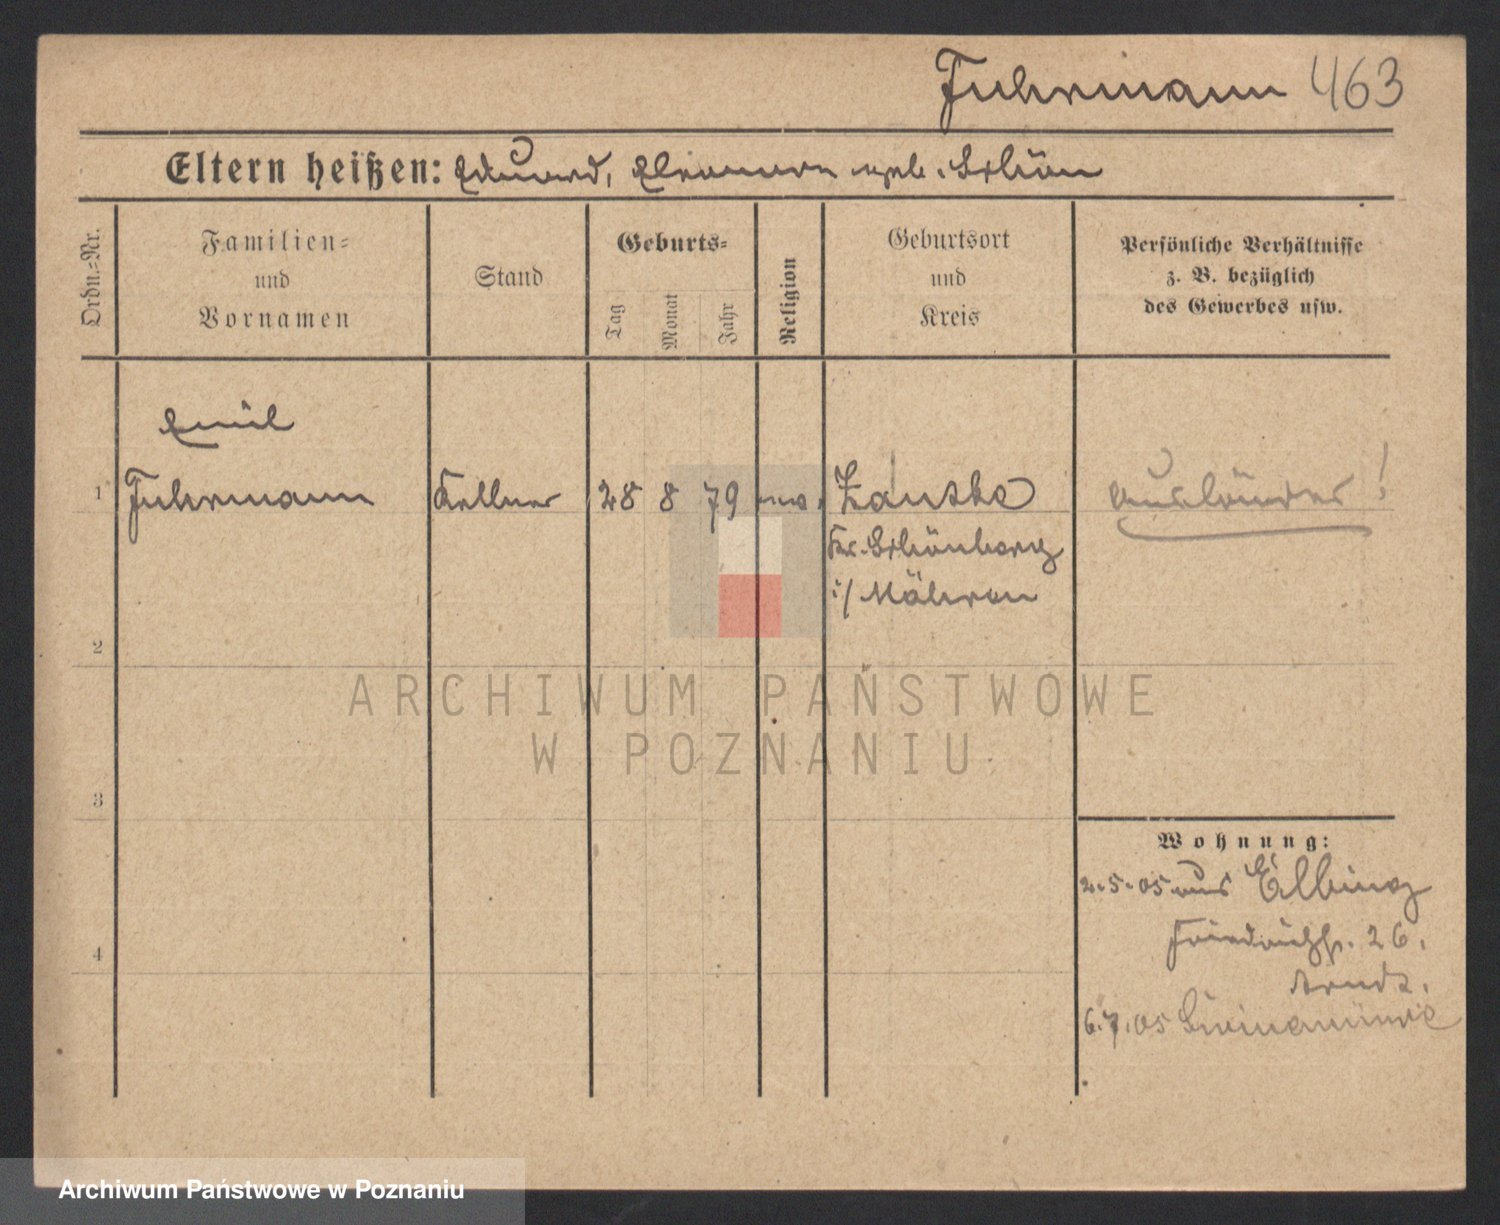 Fuhrmann 463
Eltern heißen: Eduard, Eleonora geb. Schön
Ordn.=Nr.
Familien=
und
Vornamen
Stand
Geburts=
Tag
Monat
Jahr
Religion
Geburtsort
und
Kreis
Persönliche Verhältnisse
z. B. bezüglich
des Gewerbes usw.
Emil
1 Fuhrmann Kellner 28 8 79 Zautke Ausländer!
Kr. Schönberg
i/ Mähren
2
3
4
Wohnung:
2.5.05 aus Elbing
Friedrichstr. 26.
Arndt.
6.7.05 Swinemünde
ARCHIWUM PAŃSTWOWE
W POZNANIU
Archiwum Państwowe w Poznaniu